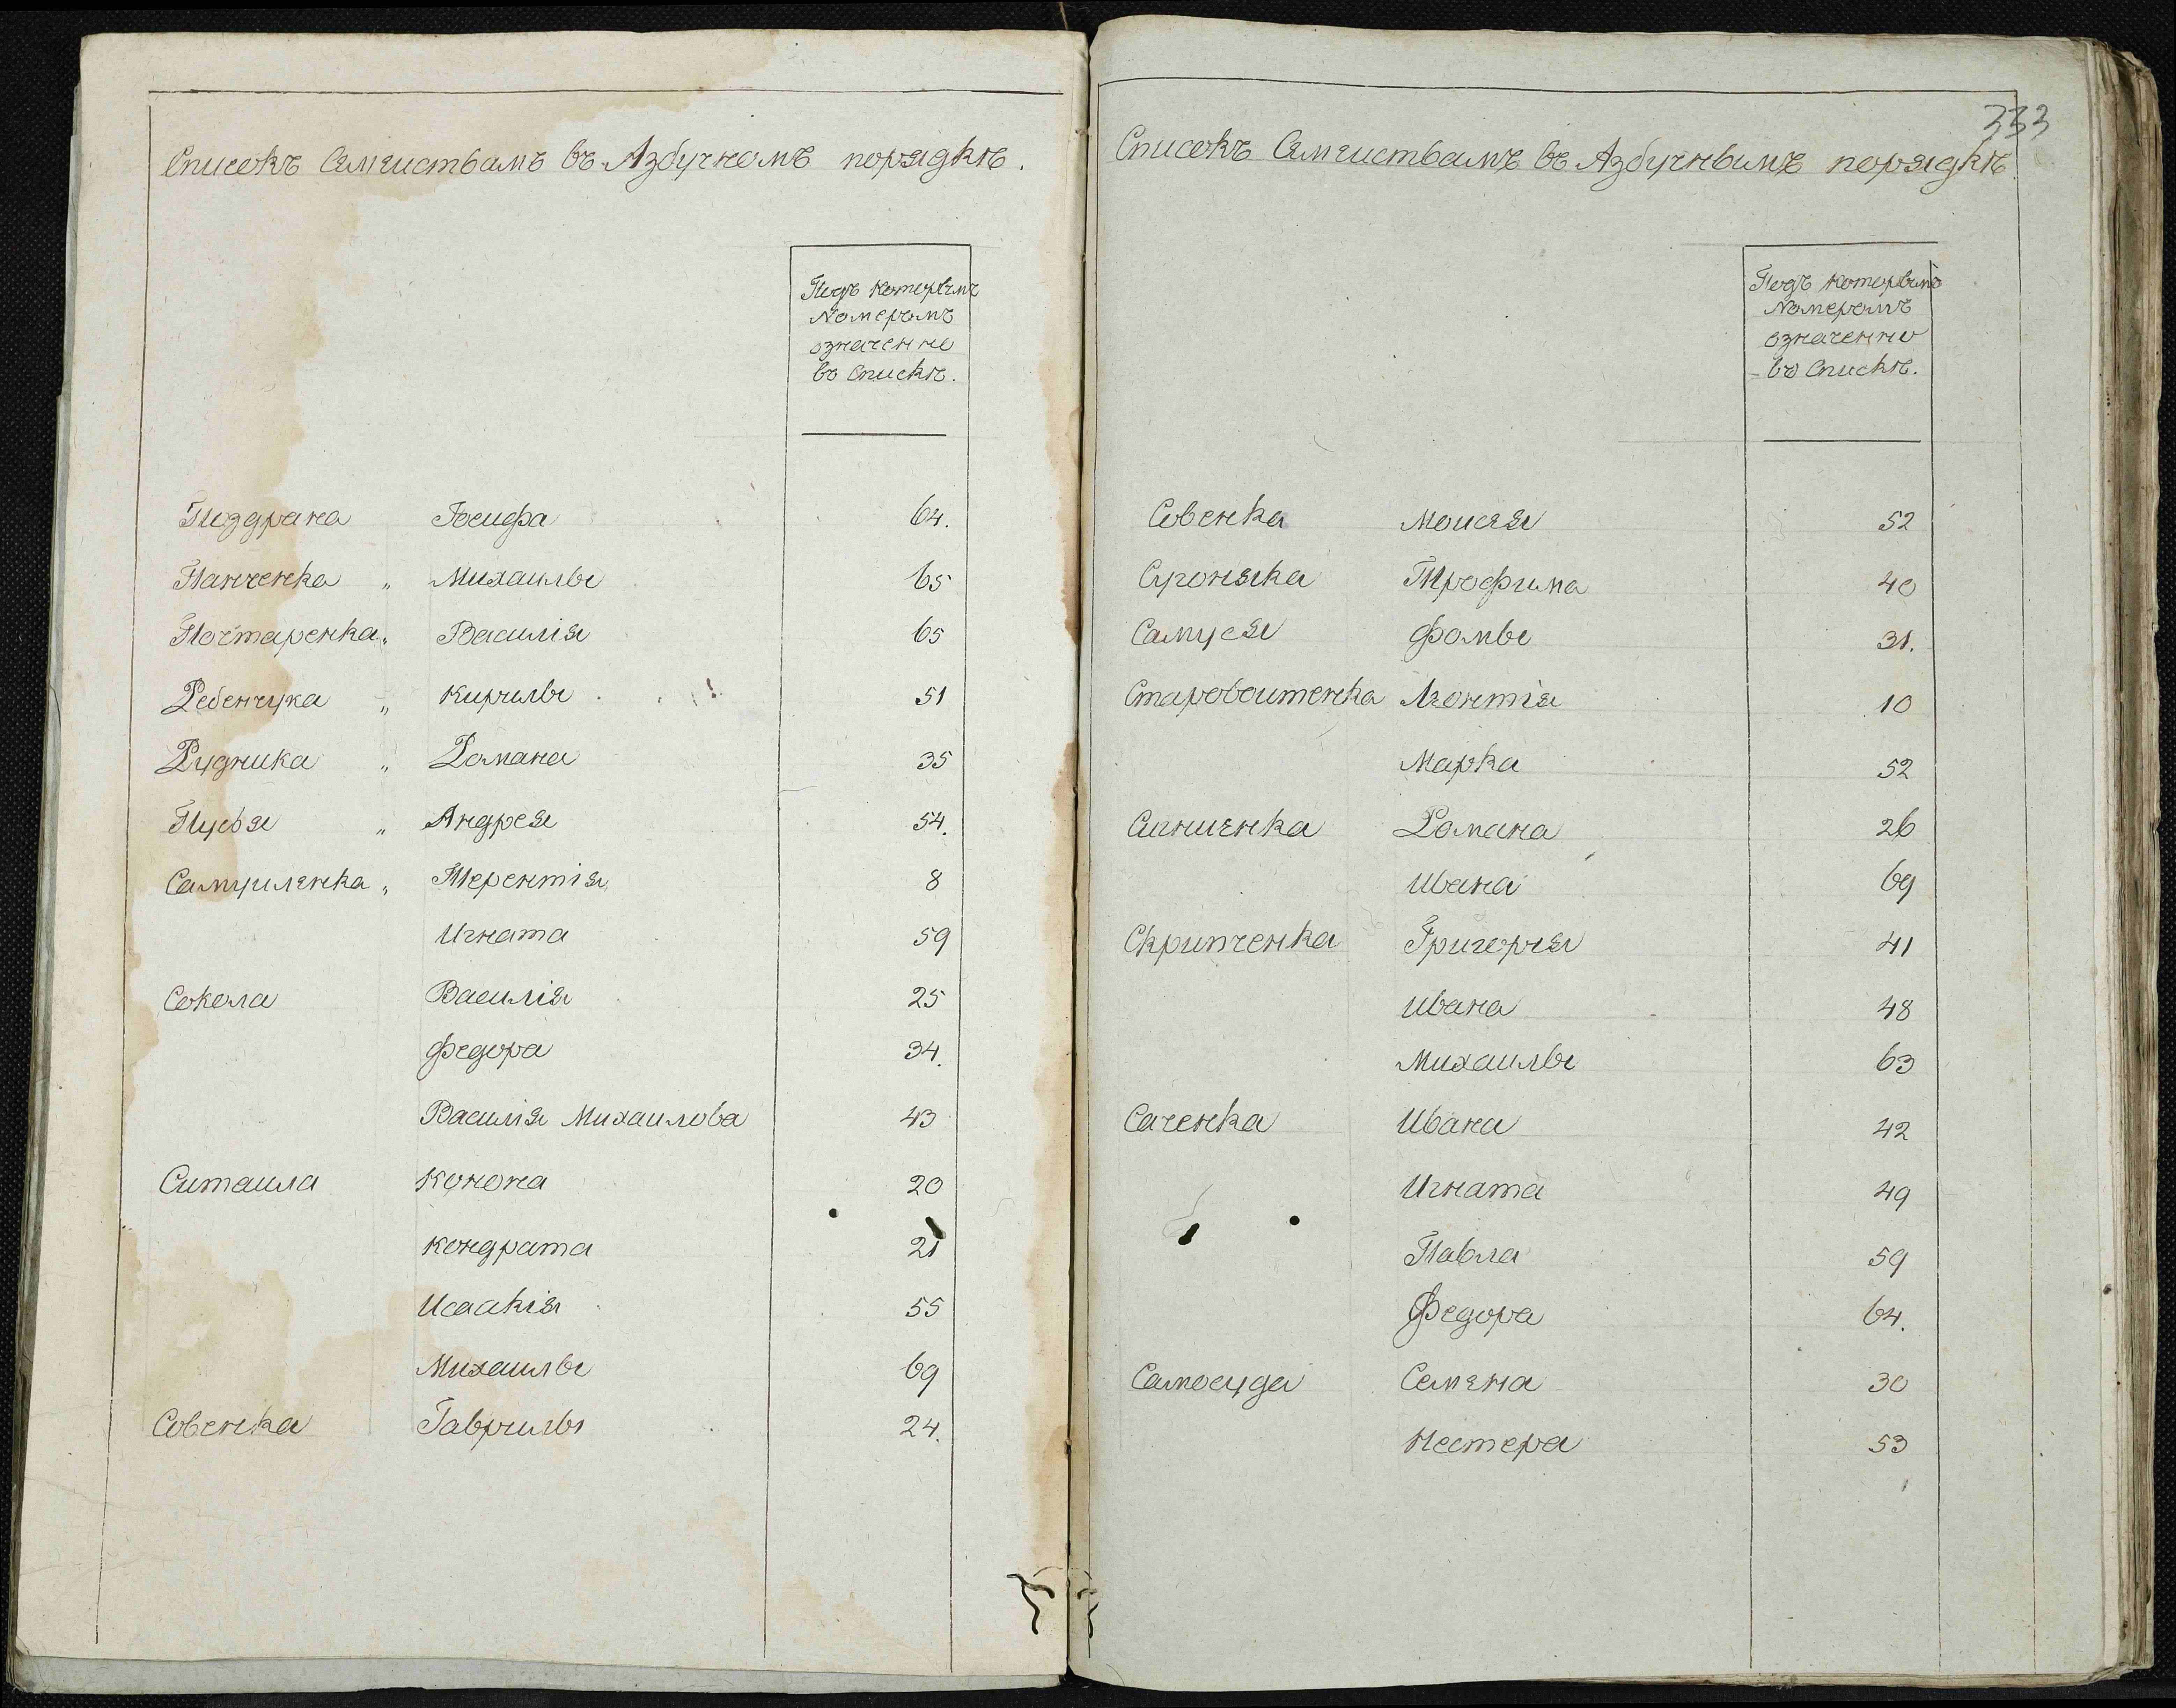 Списокъ Семеиствамъ въ Азбучномъ порядкѣ.
Подъ которымъ
Номеромъ
означенно
въ Спискѣ.
Поздрана Iосифа 64.
Панченка „ Михаилы 65
Почтаренка „ Василія 65
Ребенчука „ Кирилы 51
Рудника „ Романа 35
Пузья „ Андрея 54.
Самуиленка „ Терентія 8
Игната 59
Сокола Василія 25
Федора 34.
Василія Михаилова 43
Ситаила Конона 20
Кондрата 21
Исаакія 55
Михаилы 69
Совенка Гаврилы 24.
333
Списокъ Семеиствамъ въ Азбучнымъ порядкѣ
Подъ которымъ
Номеромъ
означенно
въ Спискѣ.
Совенка Моисея 52
Сугоняка Трофима 40
Самуся Фомы 31.
Старовоитенка Леонтія 10
Марка 52
Романа 26
Ивана 69
Скрипченка Григория 41
Ивана 48
Михаилы 63
Саченка Ивана 42
Игната 49
Павла 59
Федора 64.
Самосуда Семена 30
Нестера 53